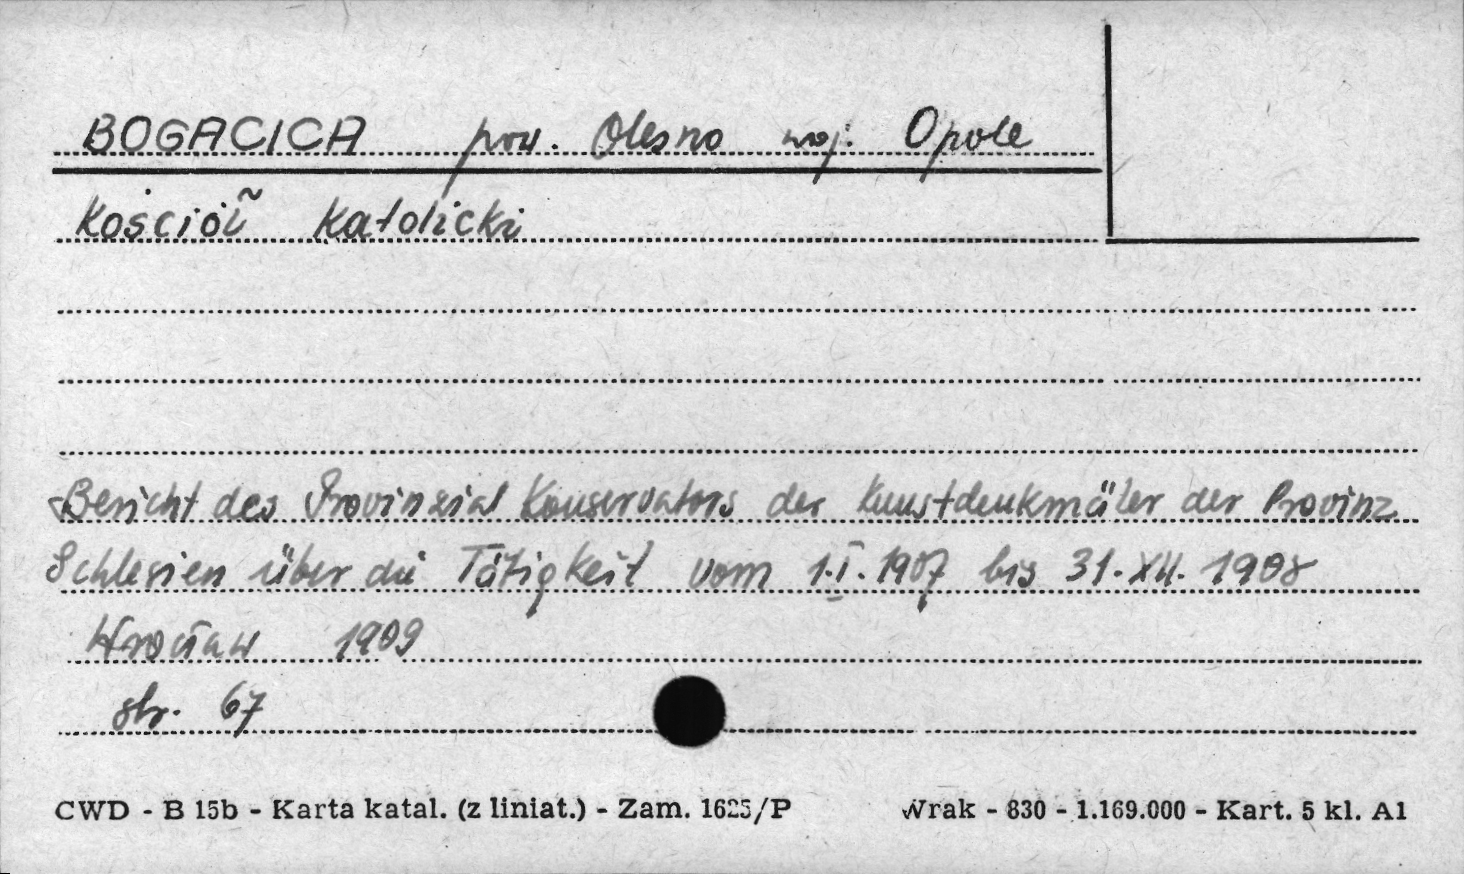 BOGACICA pow. Olesno woj. Opole
Kościół Katolicki
Bericht des Provinzial Konservators der Kunstdenkmäler der Provinz
Schlesien über die Tätigkeit vom 1.I.1907 bis 31.XII.1908
Wrocław 1909
str. 67
CWD - B 15b - Karta katal. (z liniat.) - Zam. 1625/P Wrak - 830 - 1.169.000 - Kart. 5 kl. A1